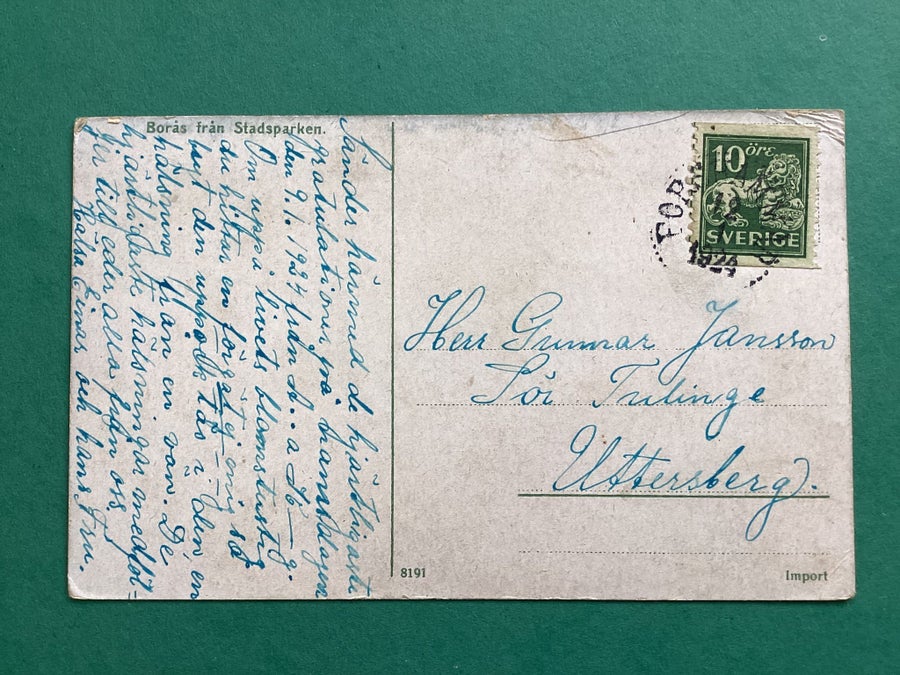 Borås från Stadsparken.
Sänder härmed de hjärtligaste
gratulationer på namnsdagen
den 9.1.1924 från A. a
Om uppå livets blomsterstig
du hittar en förgätej mig så
tag den uppock läs i den en
hälsning från en vän. De
hjärtligaste hälsningar medföl-
jer till eder alla från oss.
Hälsa Einar och hans Fru.
10 ÖRE
SVERIGE
1924
Herr Gunnar Jansson
Sör Tulinge
Uttersberg.
8191
Import